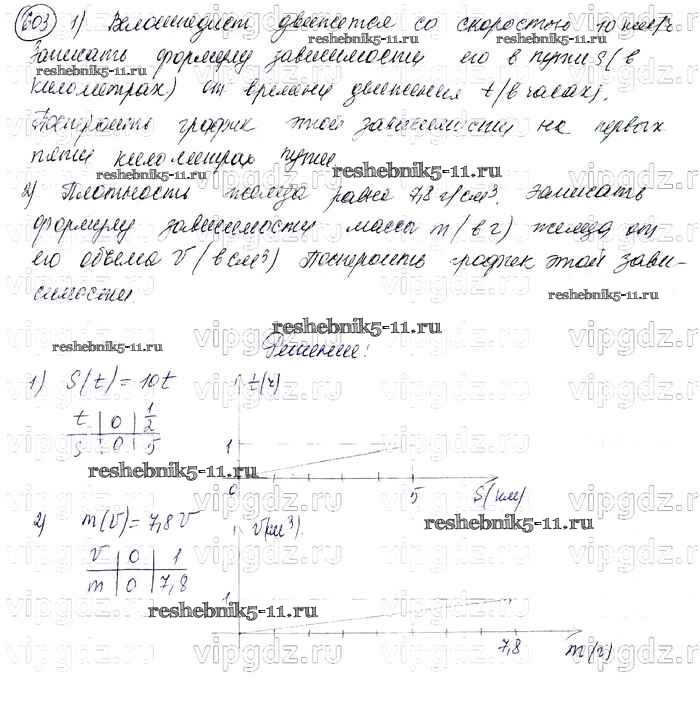 603 1) Велосипедист движется со скоростью 10 км/ч
Записать формулу зависимости его в пути S (в
километрах) от времени движения t (в часах).
Построить график этой зависимости на первых
пяти километрах пути.
2) Плотность железа равна 7,8 г/см³. Записать
формулу зависимости массы m (в г) железа от
его объема V (в см³) Построить график этой зави-
симости.
Решение:
1) S(t) = 10t
t 0 1/2
S 0 5
t(ч)
1
0 5 S(км)
2) m(V) = 7,8V
V 0 1
m 0 7,8
V(см³)
1
7,8 m(г)
reshebnik5-11.ru
vipgdz.ru